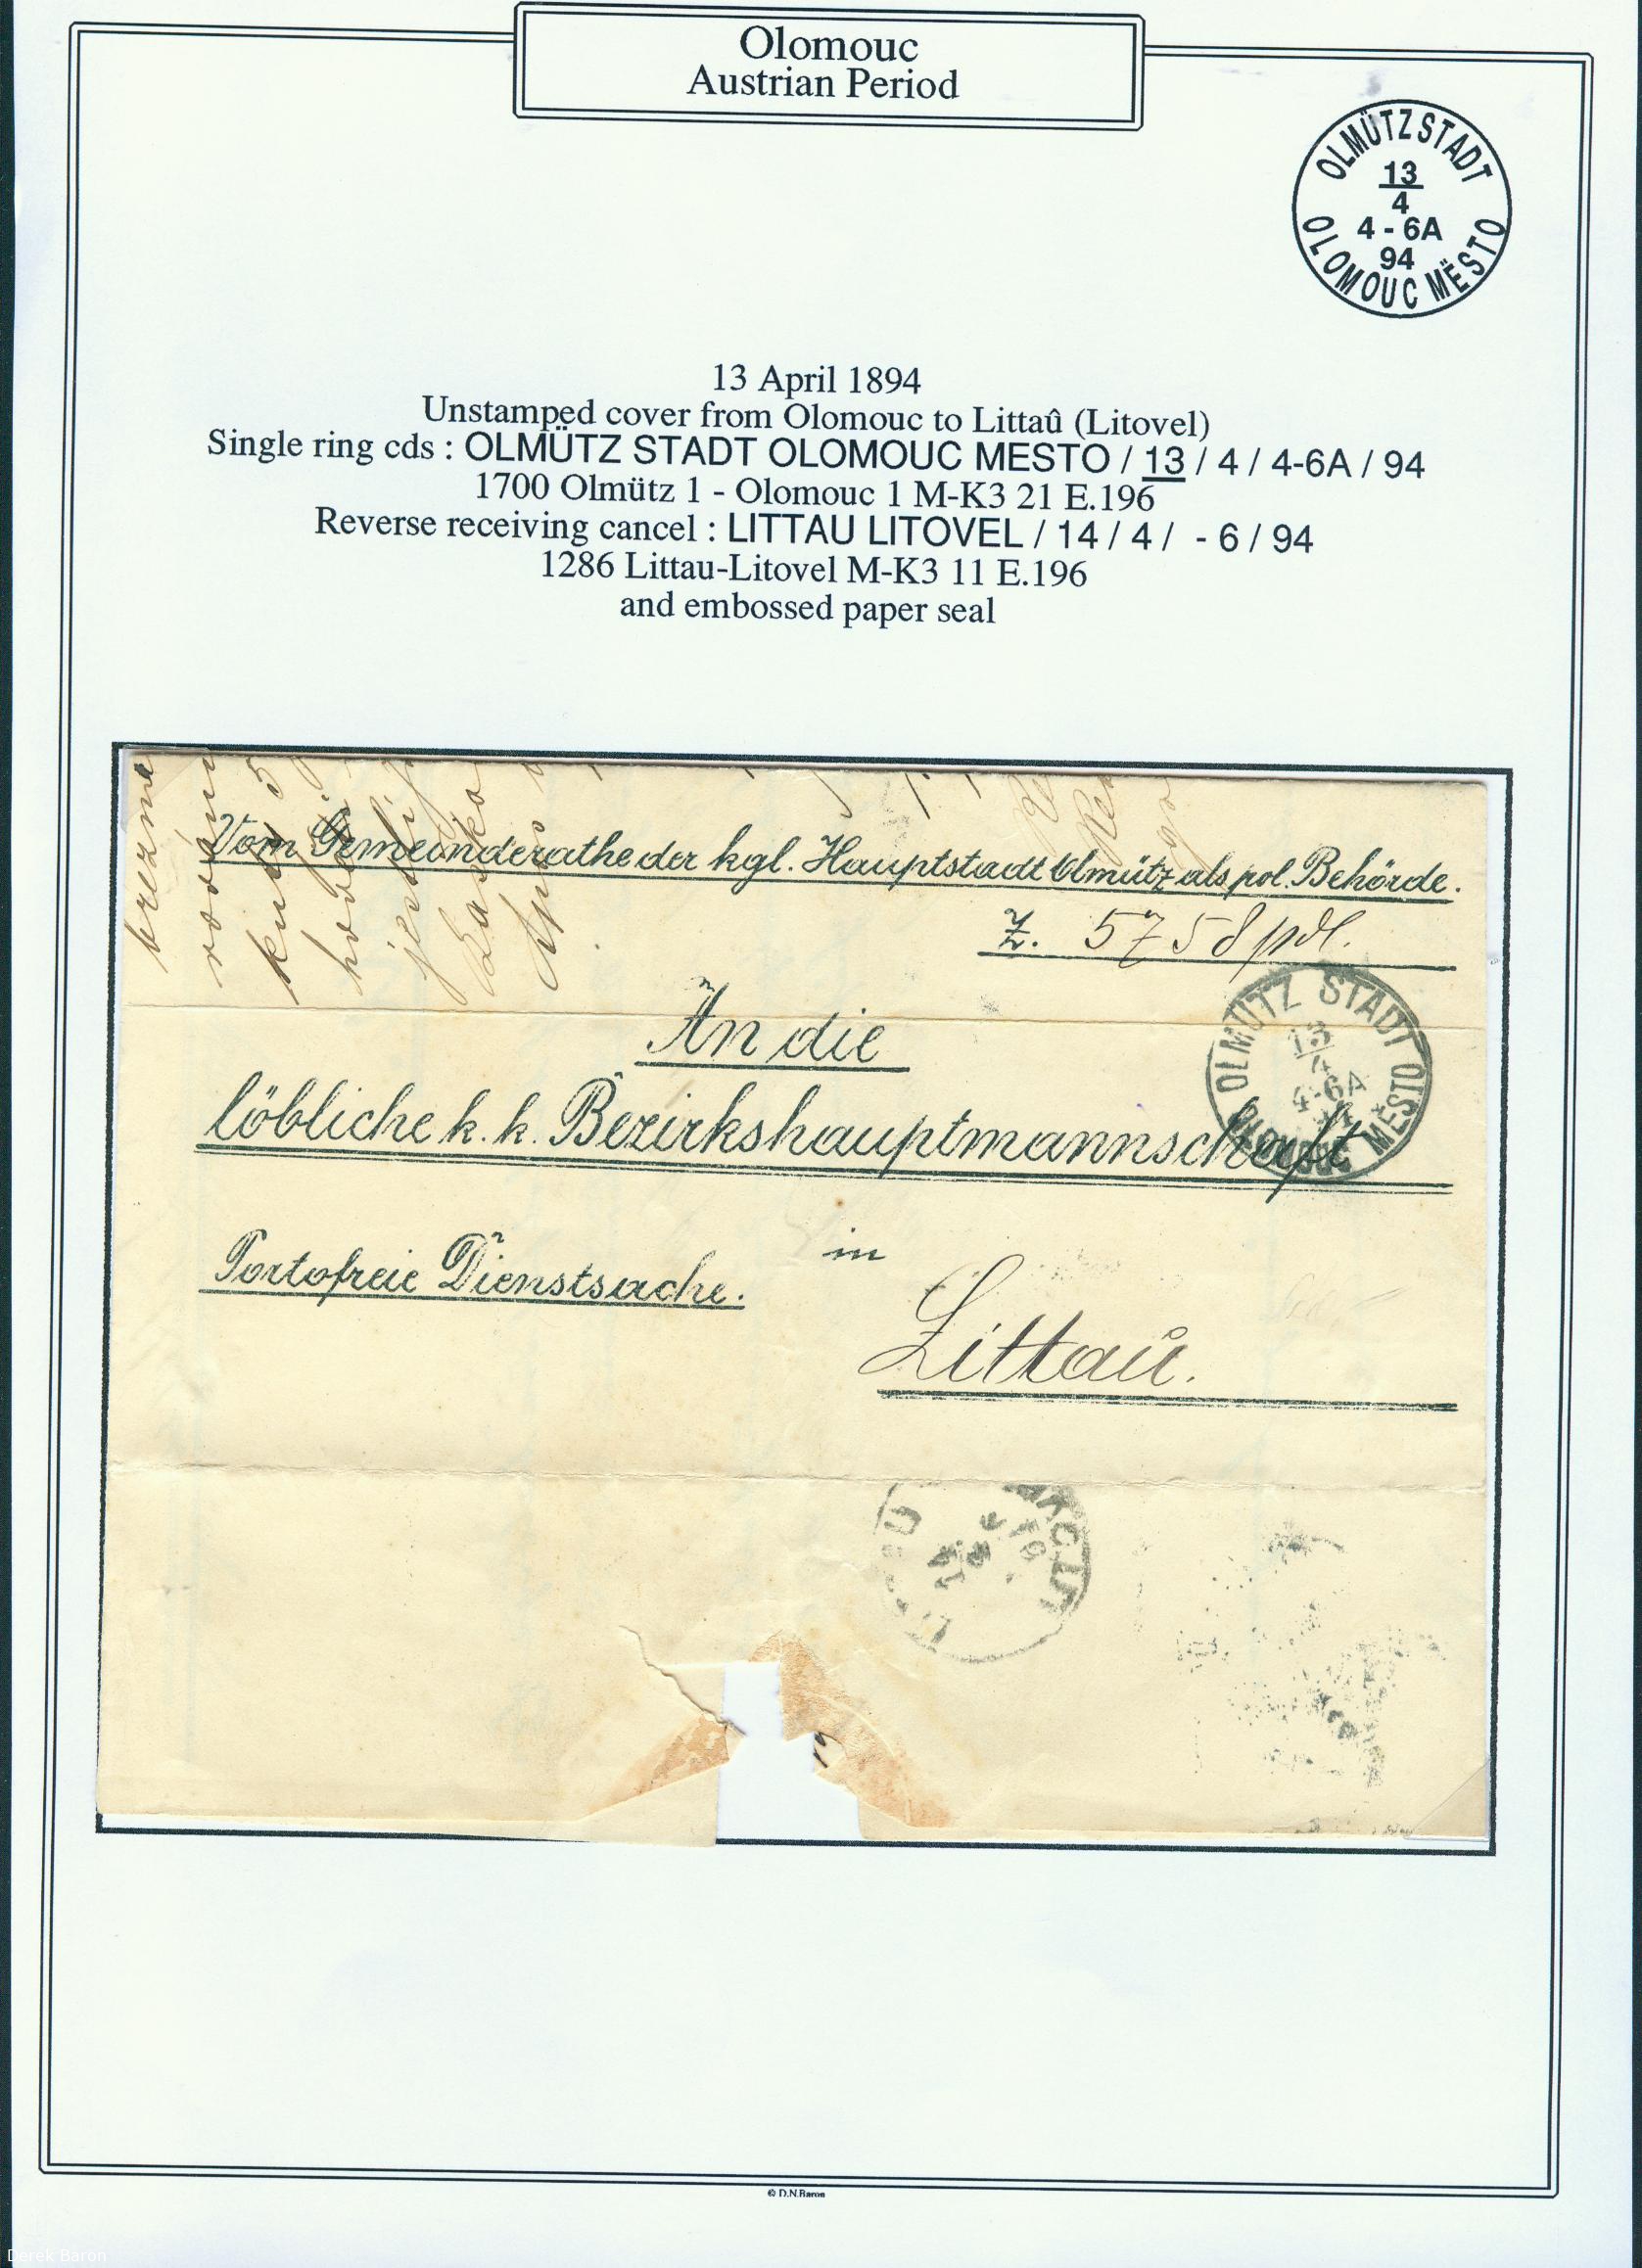 Olomouc
Austrian Period
OLMÜTZ STADT
13
4
4 - 6A
94
OLOMOUC MĚSTO
13 April 1894
Unstamped cover from Olomouc to Littaû (Litovel)
Single ring cds : OLMÜTZ STADT OLOMOUC MESTO / 13 / 4 / 4-6A / 94
1700 Olmütz 1 - Olomouc 1 M-K3 21 E.196
Reverse receiving cancel : LITTAU LITOVEL / 14 / 4 / - 6 / 94
1286 Littau-Litovel M-K3 11 E.196
and embossed paper seal
Vom Gemeinderathe der kgl. Hauptstadt Olmütz als pol. Behörde.
Z. 5758/pol.
OLMÜTZ STADT
13
4
4-6A
OLOMOUC MĚSTO
An die
löbliche k. k. Bezirkshauptmannschaft
in
Portofreie Dienstsache.
Littaŭ.
© D.N.Baron
Derek Baron